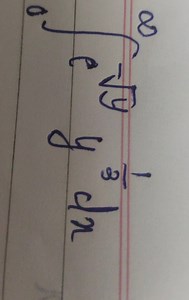 ∫₀^∞ e^{-√y} y^{1/3} dx